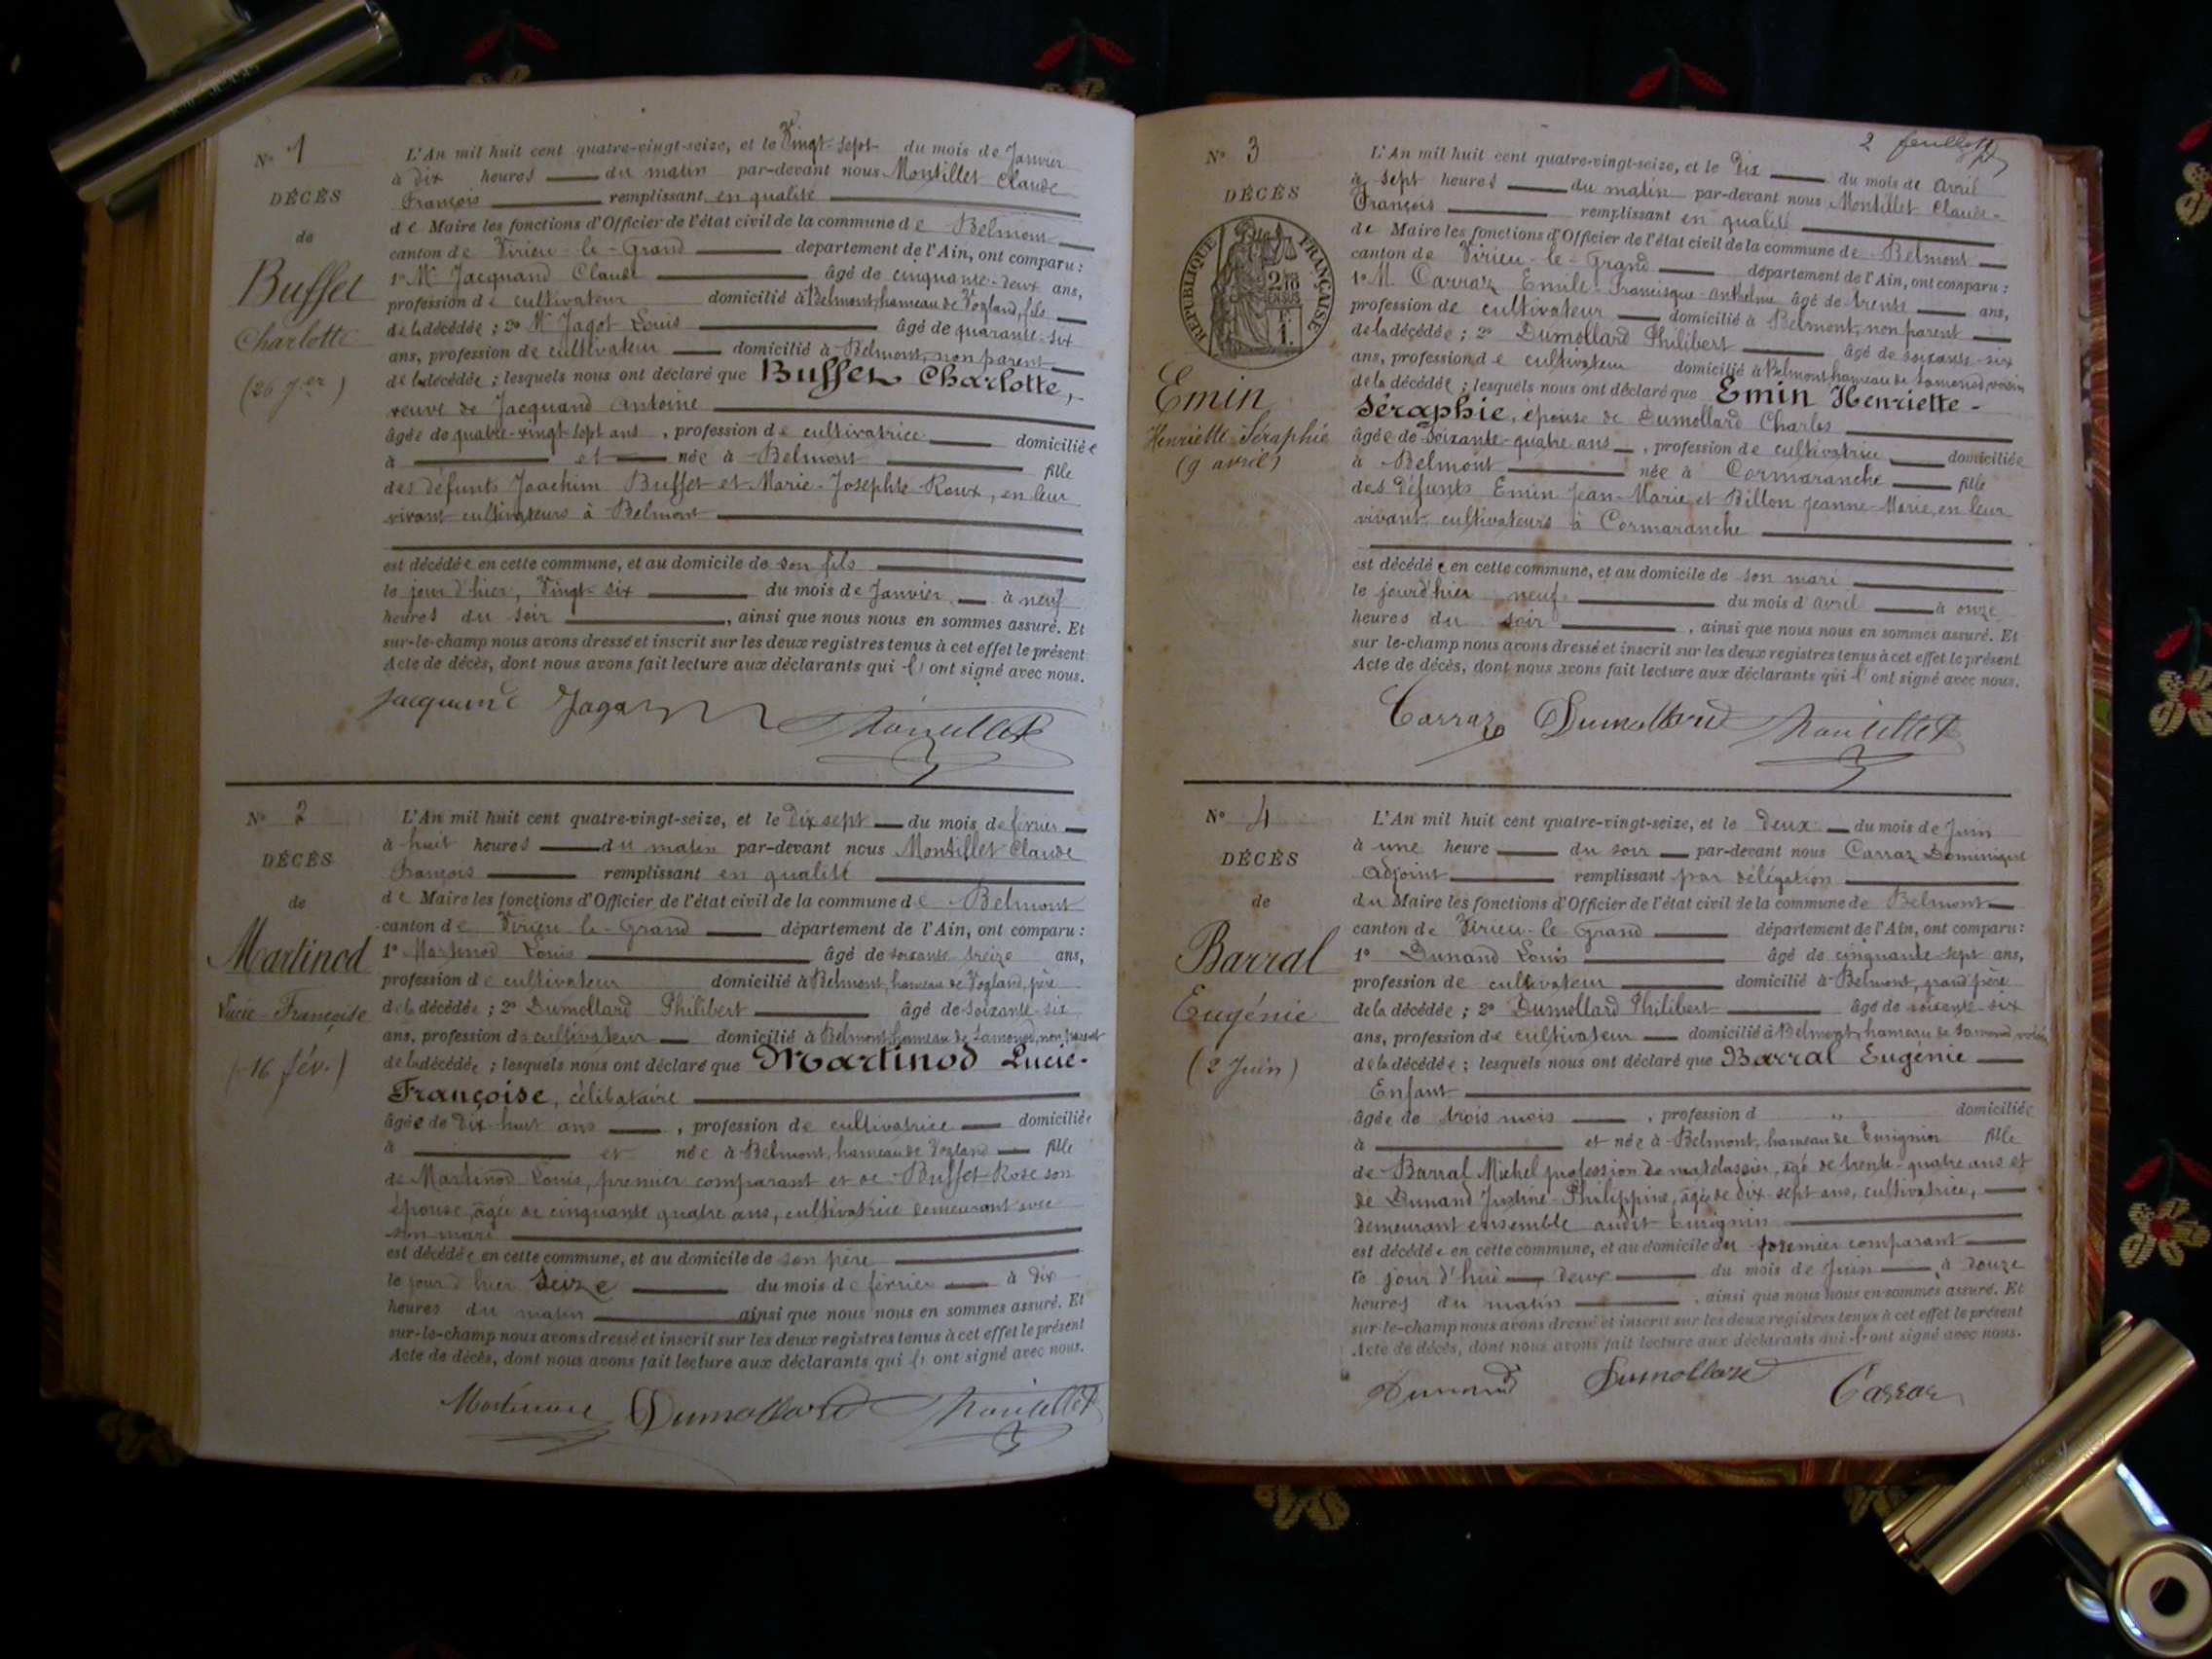 N° 1
DÉCÈS
de
Buffet
Charlotte
(26 Jer)
L'An mil huit cent quatre-vingt-seize, et le Vingt-sept du mois de Janvier
à dix heures du matin par-devant nous Montillet Claude
François remplissant en qualité
de Maire les fonctions d'Officier de l'état civil de la commune de Belmont
canton de Virieu-le-Grand département de l'Ain, ont comparu :
1° Mr Jacquand Claude âgé de cinquante-deux ans,
profession de cultivateur domicilié à Belmont, hameau de Vogland, fils
de la décédée ; 2° Mr Jagot Louis âgé de quarante-six
ans, profession de cultivateur domicilié à Belmont, non parent
de la décédée ; lesquels nous ont déclaré que Buffet Charlotte,
veuve de Jacquand Antoine
âgée de quatre-vingt-sept ans, profession de cultivatrice domiciliée
à et née à Belmont fille
des défunts Joachim Buffet et Marie-Josephte Roux, en leur
vivant cultivateurs à Belmont
est décédée en cette commune, et au domicile de son fils
le jour d'hier, Vingt-six du mois de Janvier à neuf
heures du soir, ainsi que nous nous en sommes assuré. Et
sur-le-champ nous avons dressé et inscrit sur les deux registres tenus à cet effet le présent
Acte de décès, dont nous avons fait lecture aux déclarants qui l' ont signé avec nous.
Jacquand Jagot Montillet
N° 2
DÉCÈS
de
Martinod
Lucie-Françoise
(16 fév.)
L'An mil huit cent quatre-vingt-seize, et le dix sept du mois de février
à huit heures du matin par-devant nous Montillet Claude
François remplissant en qualité
de Maire les fonctions d'Officier de l'état civil de la commune de Belmont
canton de Virieu-le-Grand département de l'Ain, ont comparu :
1° Martinod Louis âgé de soixante treize ans,
profession de cultivateur domicilié à Belmont, hameau de Vogland, père
de la décédée ; 2° Dumollard Philibert âgé de soixante-six
ans, profession de cultivateur domicilié à Belmont, hameau de Samonod, non parent
de la décédée ; lesquels nous ont déclaré que Martinod Lucie-
Françoise, célibataire
âgée de dix-huit ans, profession de cultivatrice domiciliée
à et née à Belmont, hameau de Vogland fille
de Martinod Louis, premier comparant et de Buffet Rose son
épouse, âgée de cinquante quatre ans, cultivatrice demeurant avec
son mari
est décédée en cette commune, et au domicile de son père
le jour d'hier Seize du mois de février à dix
heures du matin ainsi que nous nous en sommes assuré. Et
sur-le-champ nous avons dressé et inscrit sur les deux registres tenus à cet effet le présent
Acte de décès, dont nous avons fait lecture aux déclarants qui l' ont signé avec nous.
Dumollard Montillet
2 feuillet
N° 3
DÉCÈS
RÉPUBLIQUE FRANÇAISE
Emin
Henriette Séraphie
(9 avril)
L'An mil huit cent quatre-vingt-seize, et le dix du mois de avril
à sept heures du matin par-devant nous Montillet Claude-
François remplissant en qualité
de Maire les fonctions d'Officier de l'état civil de la commune de Belmont
canton de Virieu-le-Grand département de l'Ain, ont comparu :
1° M. Carraz Emile-Francisque-Anthelme âgé de trente ans,
profession de cultivateur domicilié à Belmont, non parent
de la décédée ; 2° Dumollard Philibert âgé de soixante-six
ans, profession de cultivateur domicilié à Belmont hameau de Samonod, voisin
de la décédée ; lesquels nous ont déclaré que Emin Henriette-
Séraphie, épouse de Dumollard Charles
âgée de Soixante-quatre ans, profession de cultivatrice domiciliée
à Belmont née à Cormaranche fille
des défunts Emin Jean-Marie et Billon Jeanne-Marie, en leur
vivant cultivateurs à Cormaranche
est décédée en cette commune, et au domicile de son mari
le jour d'hier neuf du mois d'avril à onze
heures du soir, ainsi que nous nous en sommes assuré. Et
sur-le-champ nous avons dressé et inscrit sur les deux registres tenus à cet effet le présent
Acte de décès, dont nous avons fait lecture aux déclarants qui l' ont signé avec nous.
Carraz Dumollard Montillet
N° 4
DÉCÈS
de
Barral
Eugénie
(2 Juin)
L'An mil huit cent quatre-vingt-seize, et le deux du mois de Juin
à une heure du soir par-devant nous Carraz Dominique
Adjoint remplissant par délégation
du Maire les fonctions d'Officier de l'état civil de la commune de Belmont
canton de Virieu-le-Grand département de l'Ain, ont comparu :
1° Dunand Louis âgé de cinquante-sept ans,
profession de cultivateur domicilié à Belmont, grand père
de la décédée ; 2° Dumollard Philibert âgé de soixante-six
ans, profession de cultivateur domicilié à Belmont, hameau de Samonod voisin
de la décédée ; lesquels nous ont déclaré que Barral Eugénie
Enfant
âgée de trois mois, profession d " domiciliée
à et née à Belmont, hameau de Eurignin fille
de Barral Michel profession de matelassier, âgé de trente-quatre ans et
de Dunand Justine-Philippine, âgée de dix-sept ans, cultivatrice,
demeurant ensemble audit Eurignin
est décédée en cette commune, et au domicile du premier comparant
le jour d'hui deux du mois de Juin à douze
heures du matin, ainsi que nous nous en sommes assuré. Et
sur-le-champ nous avons dressé et inscrit sur les deux registres tenus à cet effet le présent
Acte de décès, dont nous avons fait lecture aux déclarants qui l' ont signé avec nous.
Dunand Dumollard Carraz